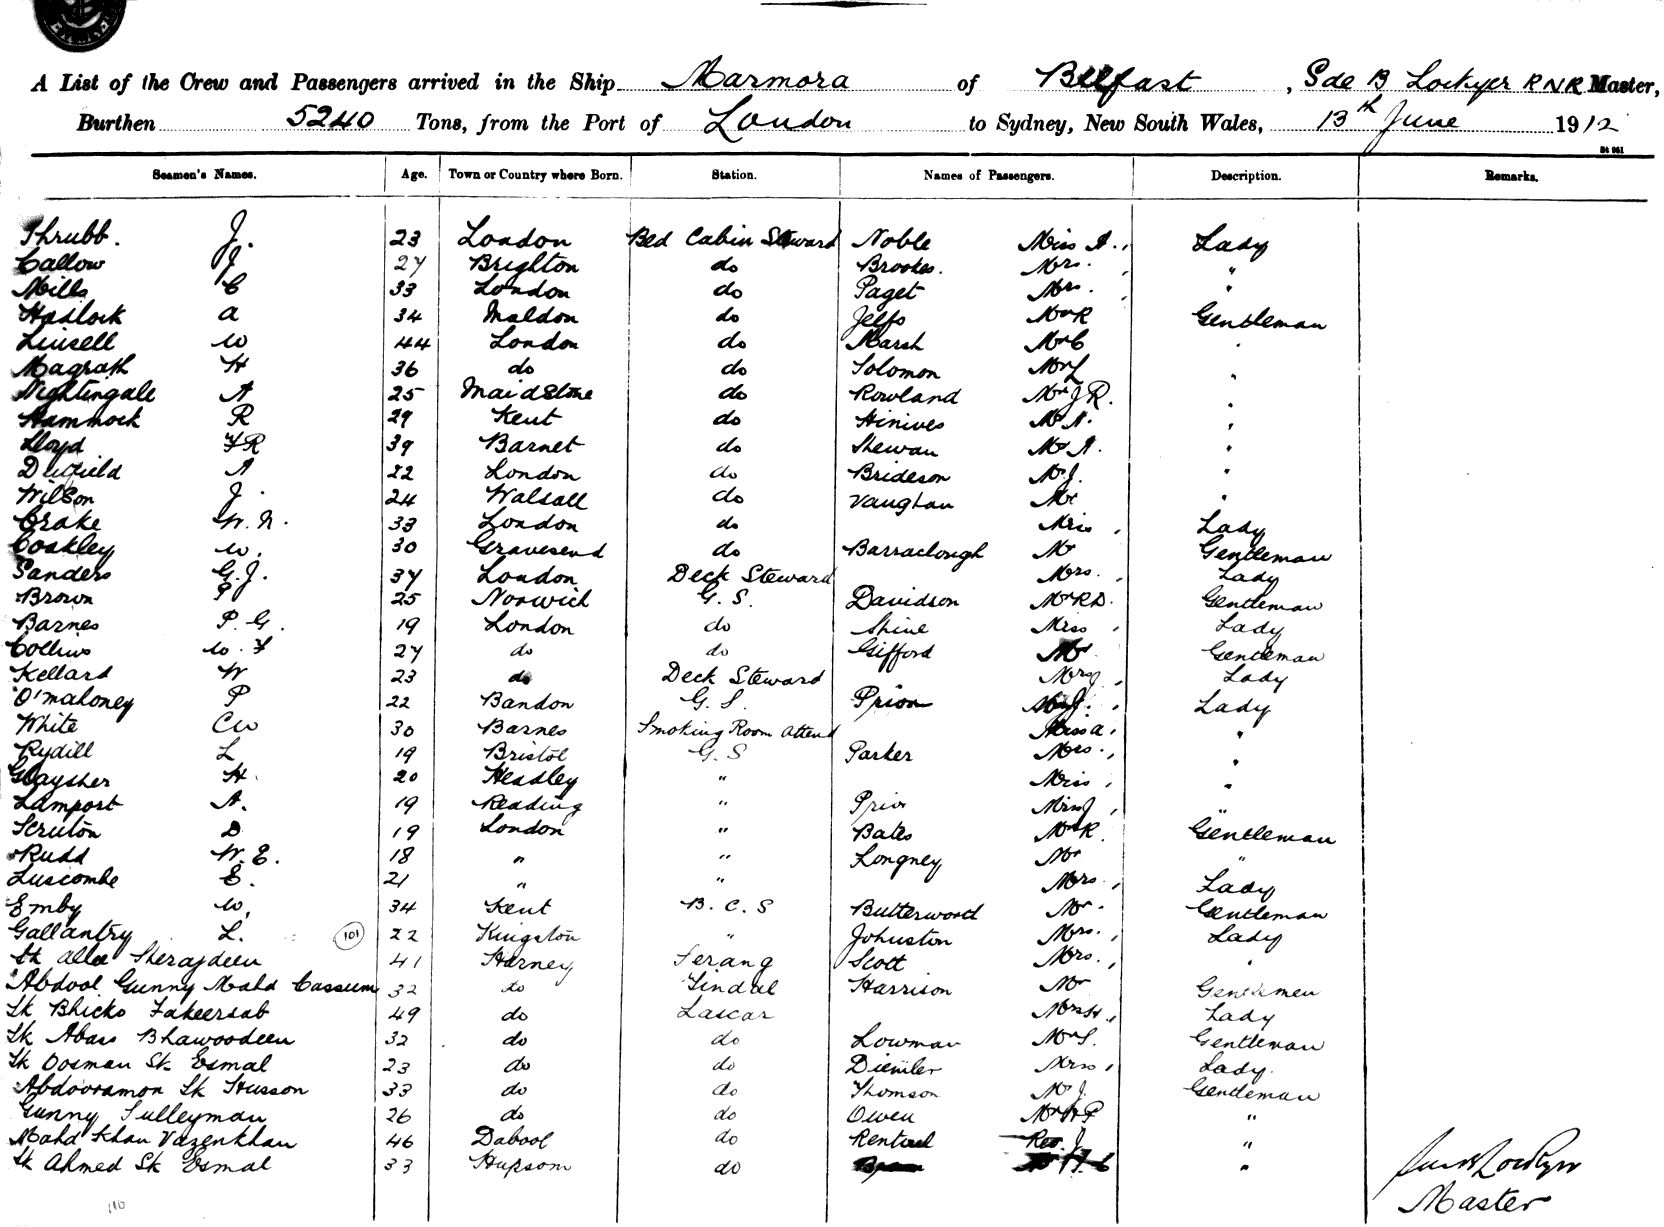 A List of the Crew and Passengers arrived in the Ship Marmora of Belfast, Gde B Lockyer RNR Master,
Burthen 5240 Tons, from the Port of London to Sydney, New South Wales, 13th June 1912
St 961
Seamen's Names. Age. Town or Country where Born. Station. Names of Passengers. Description. Remarks.
Thrubb. J. 23 London Bed Cabin Steward Noble Miss A., Lady
Callow J 27 Brighton do Brookes. Mrs. , "
Mills C 33 London do Paget Mrs. , "
Hadlock a 34 Maldon do Jelfs Mr R Gentleman
Linsell W 44 London do Marsh Mr C "
Magrath H 36 do do Solomon Mr L "
Nightingale A 25 Maidstone do Rowland Mr J R. "
Hammock R 29 Kent do Hinives Mr A. "
Lloyd FR 39 Barnet do Shewan Mr A. "
Duffield A 22 London do Brideson Mr J. "
Wilson J. 24 Walsall do Vaughan Mr "
Crake W. N. 33 London do Miss , Lady
Coakley W. 30 Gravesend do Barraclough Mr Gentleman
Sanders G. J. 37 London Deck Steward Mrs. , Lady
Brown P 25 Norwich G. S. Davidson Mr R D. Gentleman
Barnes P. G. 19 London do Shine Miss , Lady
Collins W. F 27 do do Gifford Mr Gentleman
Kellard W 23 do Deck Steward Mrs , Lady
O'Mahoney P 22 Bandon G. S. Prior , Lady
White CW 30 Barnes Smoking Room Attend Miss a, "
Rydill L 19 Bristol G. S Parker Mrs. , "
Glaysher H. 20 Headley " Miss , "
Lamport A. 19 Reading " Prior Miss J , "
Scruton D 19 London " Bates Mr R Gentleman
Rudd W. E. 18 " " Longney Mr "
Luscombe E. 21 " " Mrs. , Lady
Emby W. 34 Kent B. C. S Butterword Mr. Gentleman
Gallantry L. 101 22 Kingston " Johnston Mrs. , Lady
Sk alla Sherajdeen 41 Harney Serang Scott Mrs. , "
Abdool Gunny Mahd Cassum 32 do Tindal Harrison Mr Gentlemen
Sk Bhicko Fakeersab 49 do Lascar Mrs H., Lady
Sk Abass Bhawoodeen 32 do do Lowman Mr S. Gentleman
Sk Oosman Sk Esmal 23 do do Diemler Mrs , Lady.
Abdooramon Sk Husson 33 do do Thomson Mr J. Gentleman
Gunny Sulleyman 26 do do Owen Mr H P "
Mahd Khan Vazenkhan 46 Dabool do Rentoul Rev. J. "
Sk Ahmed Sk Esmal 33 Hupsom do "
Master
110